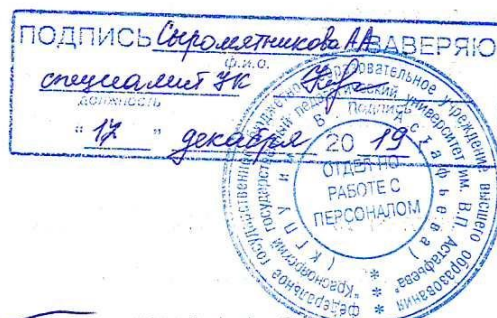 ПОДПИСЬ Сыромятникова АА ЗАВЕРЯЮ
Ф.И.О.
специалист УК
должность Подпись
" 17 " декабря 20 19
ОТДЕЛ ПО
РАБОТЕ С
ПЕРСОНАЛОМ
федеральное государственное бюджетное образовательное учреждение высшего образования
"Красноярский государственный педагогический университет им. В.П. Астафьева"
(КГПУ им. В.П. Астафьева)
* * *